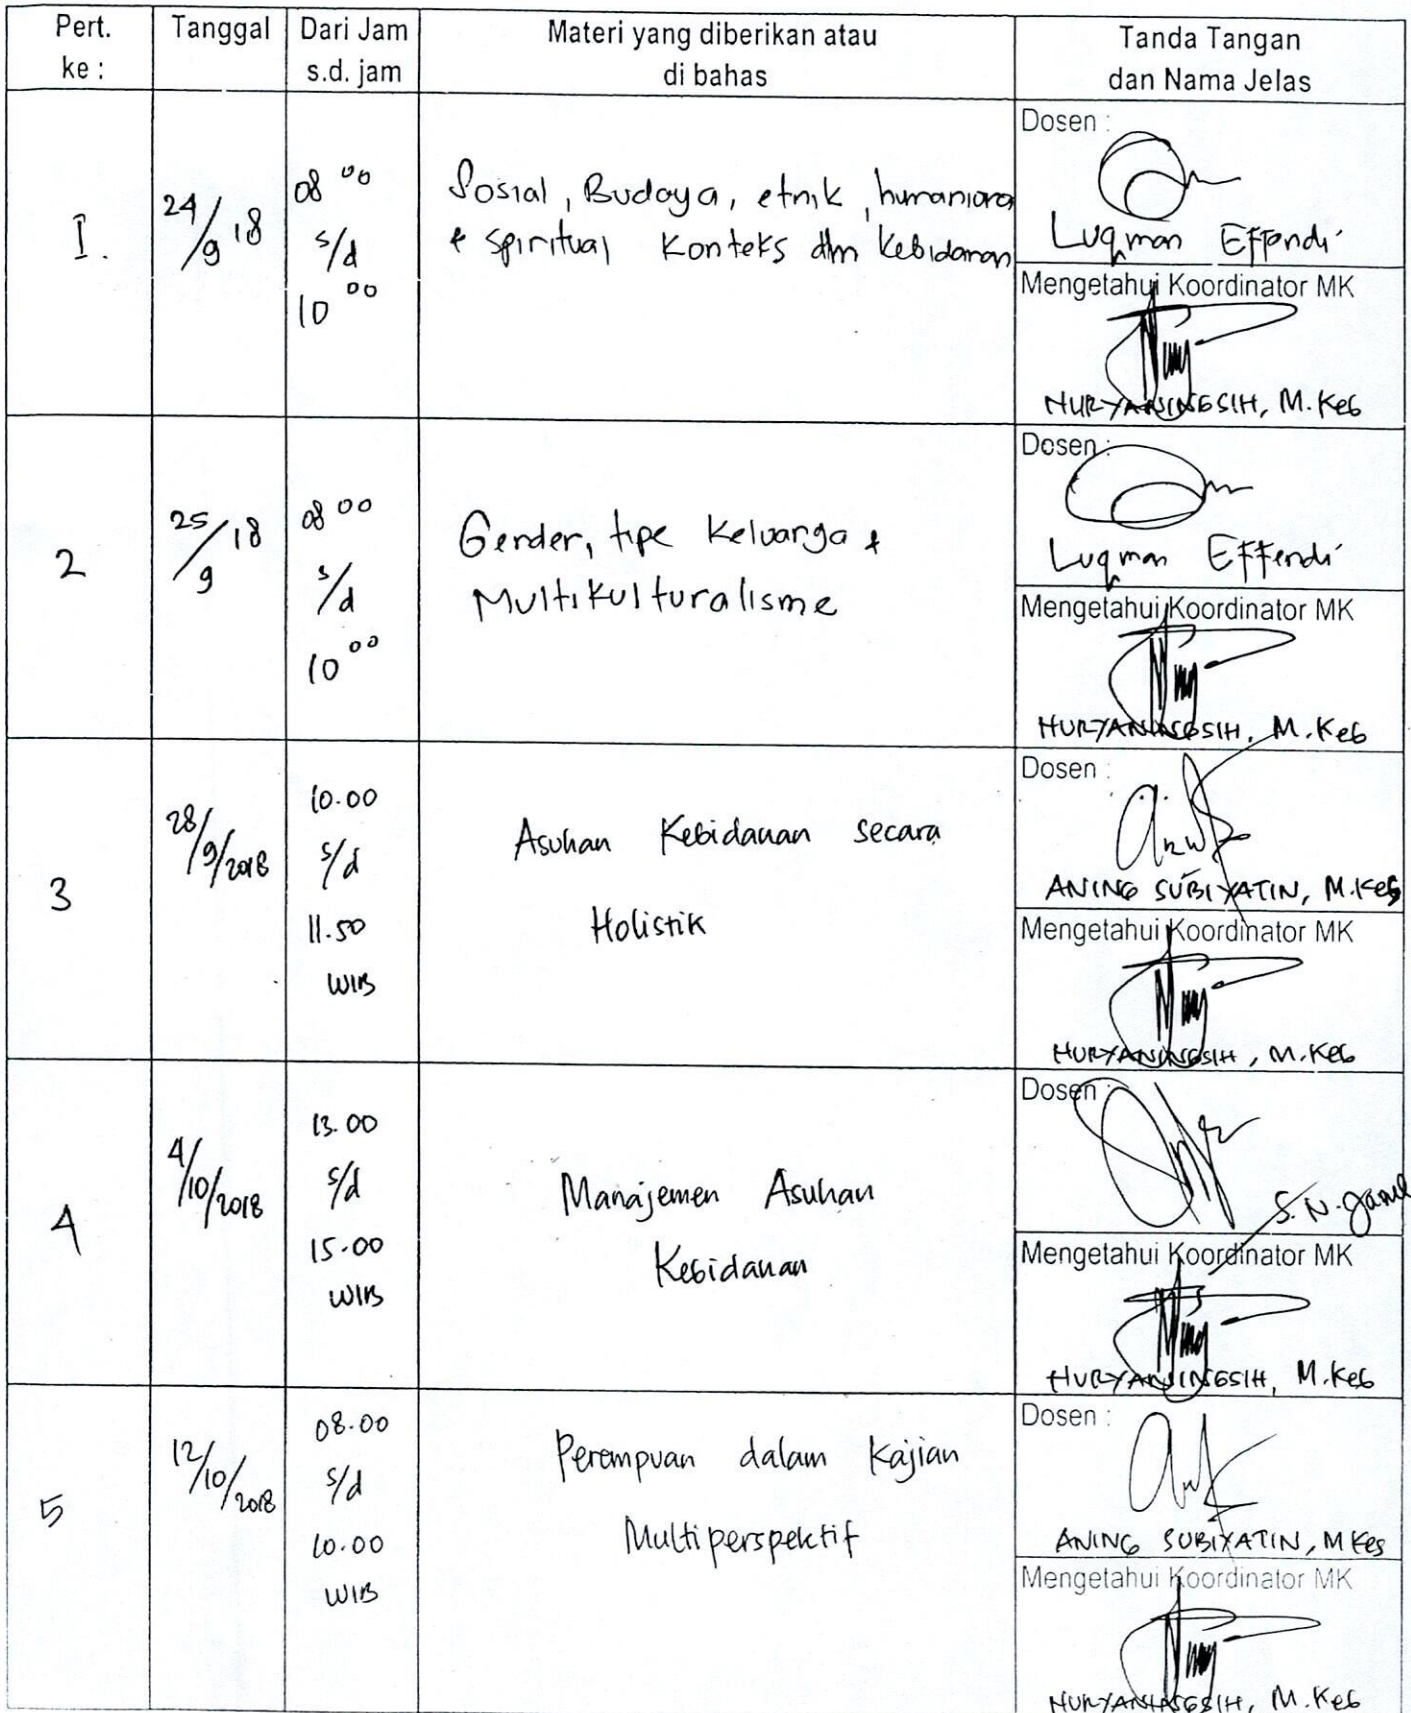 Pert. ke :
Tanggal
Dari Jam s.d. jam
Materi yang diberikan atau di bahas
Tanda Tangan dan Nama Jelas
I.
24/9 18
08 00 s/d 10 00
Sosial, Budaya, etnik, humaniora
& spiritual Konteks dlm Kebidanan
Dosen :
Luqman Effendi
Mengetahui Koordinator MK
NURYANINGSIH, M.Keb
2
25/9 18
08 00 s/d 10 00
Gender, tipe Keluarga &
Multikulturalisme
Dosen :
Luqman Effendi
Mengetahui Koordinator MK
NURYANINGSIH, M.Keb
3
28/9/2018
10.00 s/d 11.50 WIB
Asuhan Kebidanan secara
Holistik
Dosen :
ANING SUBIYATIN, M.Kes
Mengetahui Koordinator MK
NURYANINGSIH, M.Keb
4
4/10/2018
13.00 s/d 15.00 WIB
Manajemen Asuhan
Kebidanan
Dosen :
S. N. Jamil
Mengetahui Koordinator MK
NURYANINGSIH, M.Keb
5
12/10/2018
08.00 s/d 10.00 WIB
Perempuan dalam Kajian
Multiperspektif
Dosen :
ANING SUBIYATIN, MKes
Mengetahui Koordinator MK
NURYANINGSIH, M.Keb